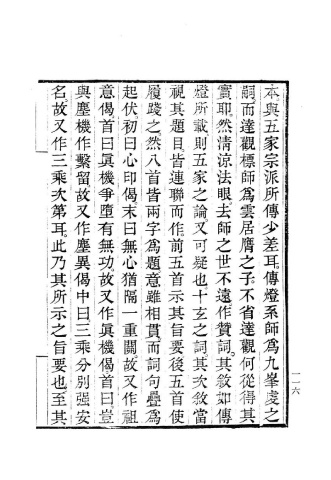 本與五家宗派所傳少差耳傳燈系師爲九峯虔之
嗣而達觀標師爲雲居膺之子不省達觀何從得其
實耶然淸涼法眼去師之世不遠作贊詞其敘如傳
燈所載則五家之論又可疑也十玄之詞其次敘當
視其題目皆連聯而作前五首示其旨要後五首使
履踐之然八首皆兩字爲題意雖相貫而詞句疊爲
起伏初曰心印偈末曰無心猶隔一重關故又作祖
意偈首曰眞機爭墮有無功故又作眞機偈首曰豈
與塵機作繫留故又作塵異偈中曰三乘分別强安
名故又作三乘次第耳此乃其所示之旨要也至其
一一六